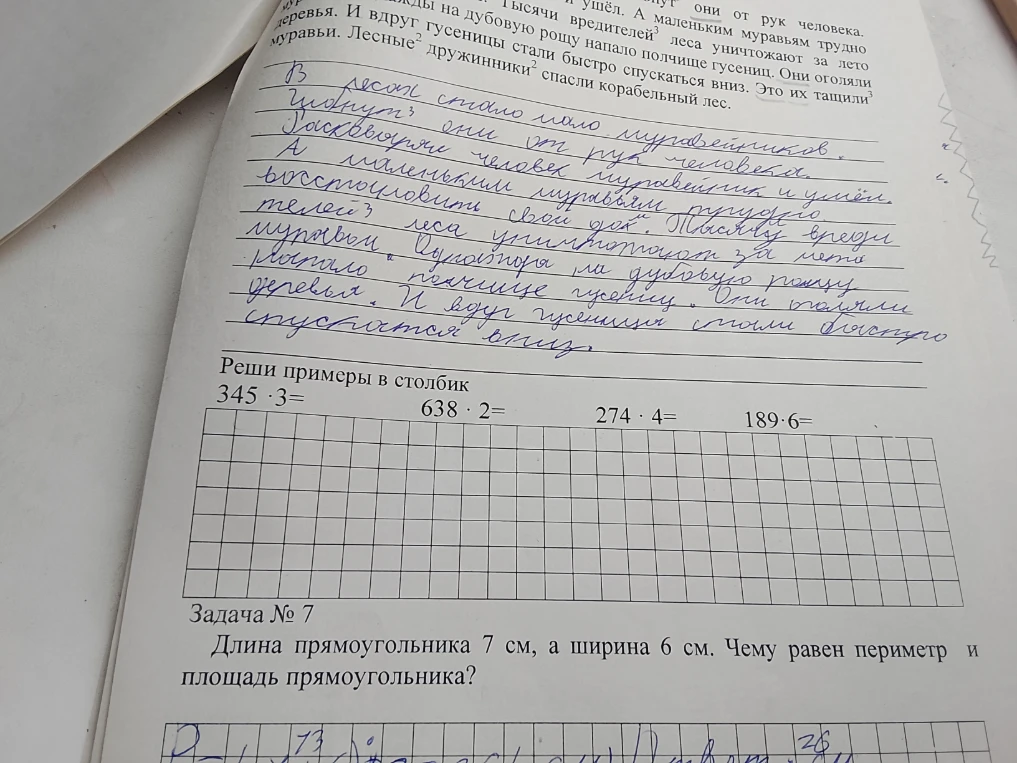 они от рук человека.
и ушёл. А маленьким муравьям трудно
Тысячи вредителей³ леса уничтожают за лето
на дубовую рощу напало полчище гусениц. Они оголяли
деревья. И вдруг гусеницы стали быстро спускаться вниз. Это их тащили³
муравьи. Лесные² дружинники² спасли корабельный лес.
В лесах стало мало муравейников.
они от рук человека.
человек муравейник и ушёл.
А маленьким муравьям трудно
свой дом. Тысячи вреди
телей3 леса уничтожают за лето
муравьи. на дубовую рощу
напало полчище гусениц. Они оголяли
деревья. И вдруг гусеницы стали быстро
спускатся вниз.
Реши примеры в столбик
345 ·3=
638 · 2=
274 · 4=
189·6=
Задача № 7
Длина прямоугольника 7 см, а ширина 6 см. Чему равен периметр и
площадь прямоугольника?
13
26